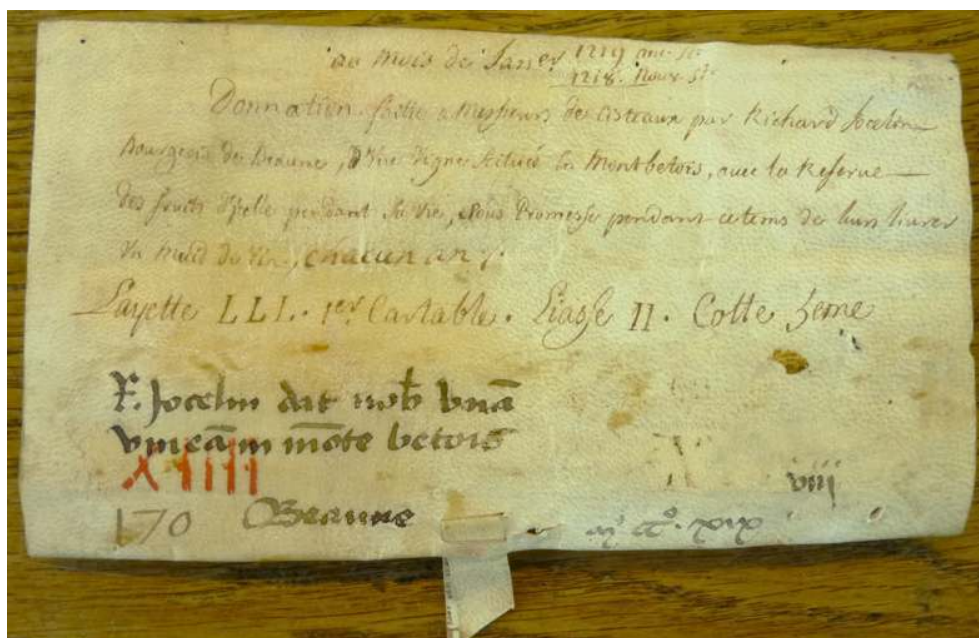 au Mois de Janer 1219 anc. St.
1218. Nouv. St.
Donnation faitte a Messieurs de Cisteaux par Richard Jocelin
Bourgeois de Beaune, d'Une Vigne Scituée En Montbetois, avec la Reserve
des fruits d'Icelle pendant Sa Vie, Sous Promesse pendant ce tems de leurs livrer
Un Muid de Vin, chacun an
Layette LLI. 1er. Cartable. Liasse II. Cotte 3eme
R. Jocelin dat nob unā
vineam mōte betois
XIIII
viij
170 Beaune